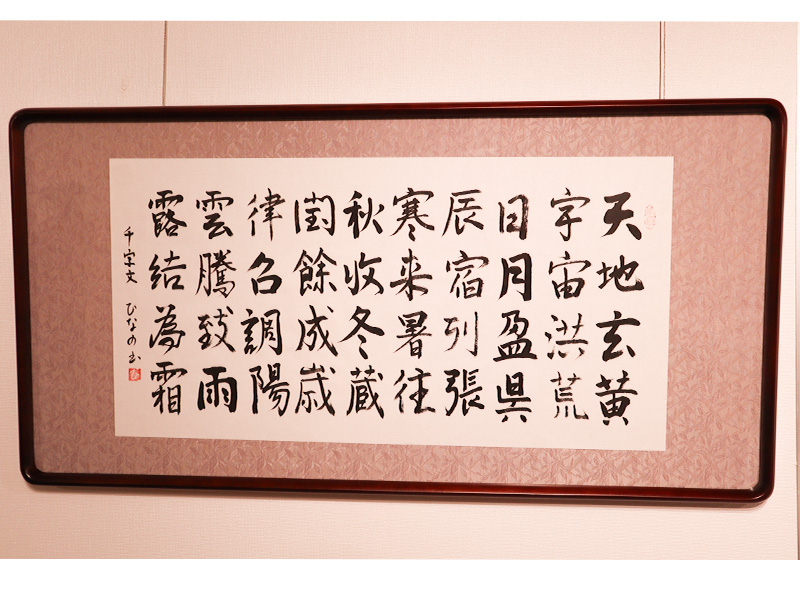 天地玄黄
宇宙洪荒
日月盈昃
辰宿列張
寒来暑往
秋收冬蔵
閏餘成歳
律召調陽
雲騰致雨
露結為霜
千字文 ひなの書